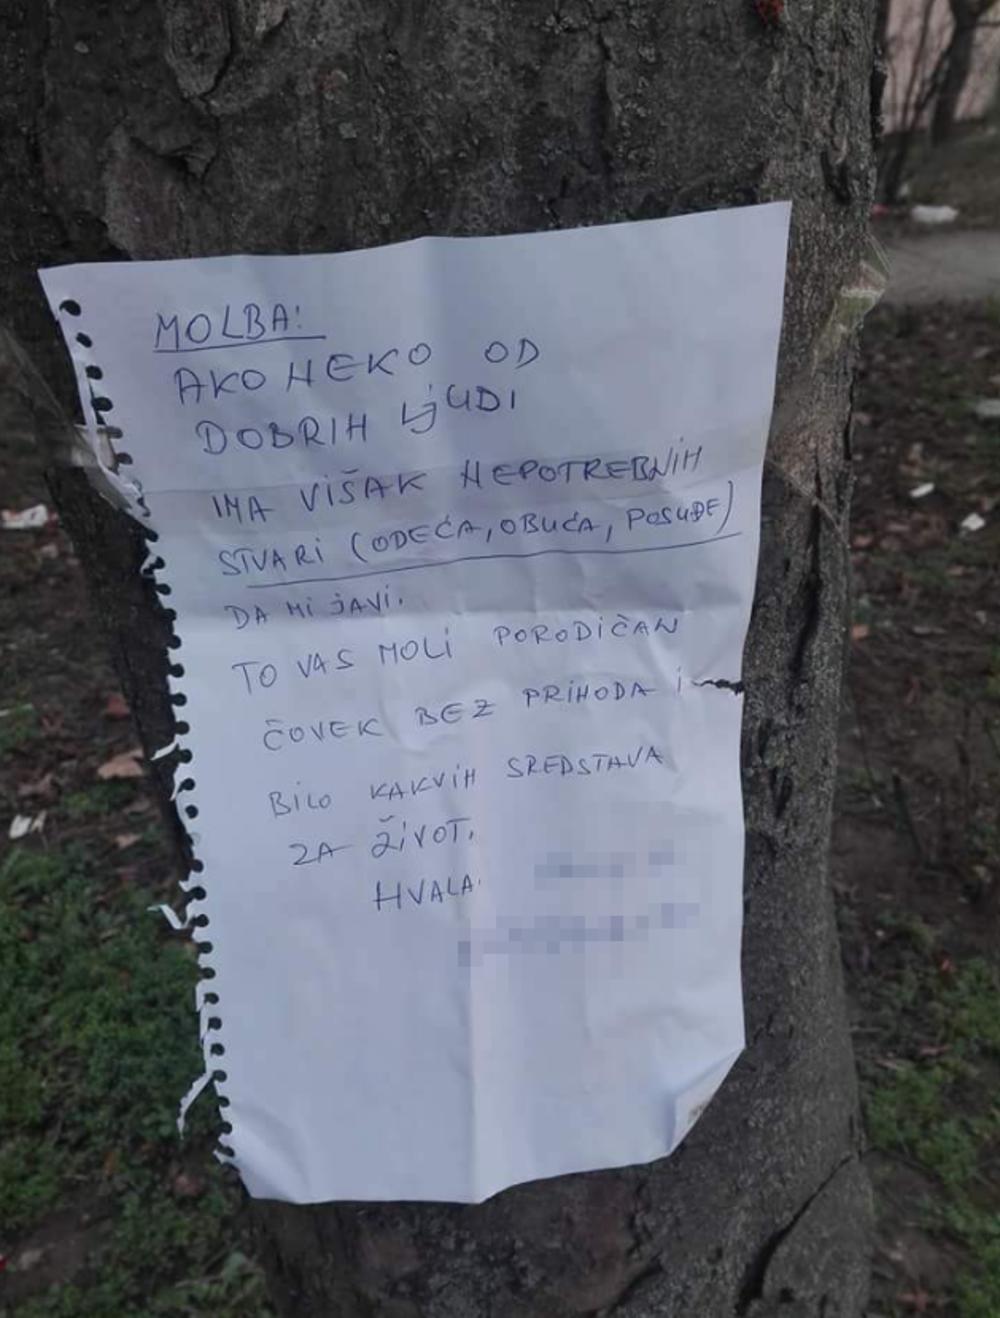 MOLBA:
AKO NEKO OD
DOBRIH LJUDI
IMA VIŠAK NEPOTREBNIH
STVARI (ODEĆA, OBUĆA, POSUĐE)
DA MI JAVI.
TO VAS MOLI PORODIČAN
ČOVEK BEZ PRIHODA I
BILO KAKVIH SREDSTAVA
ZA ŽIVOT.
HVALA.